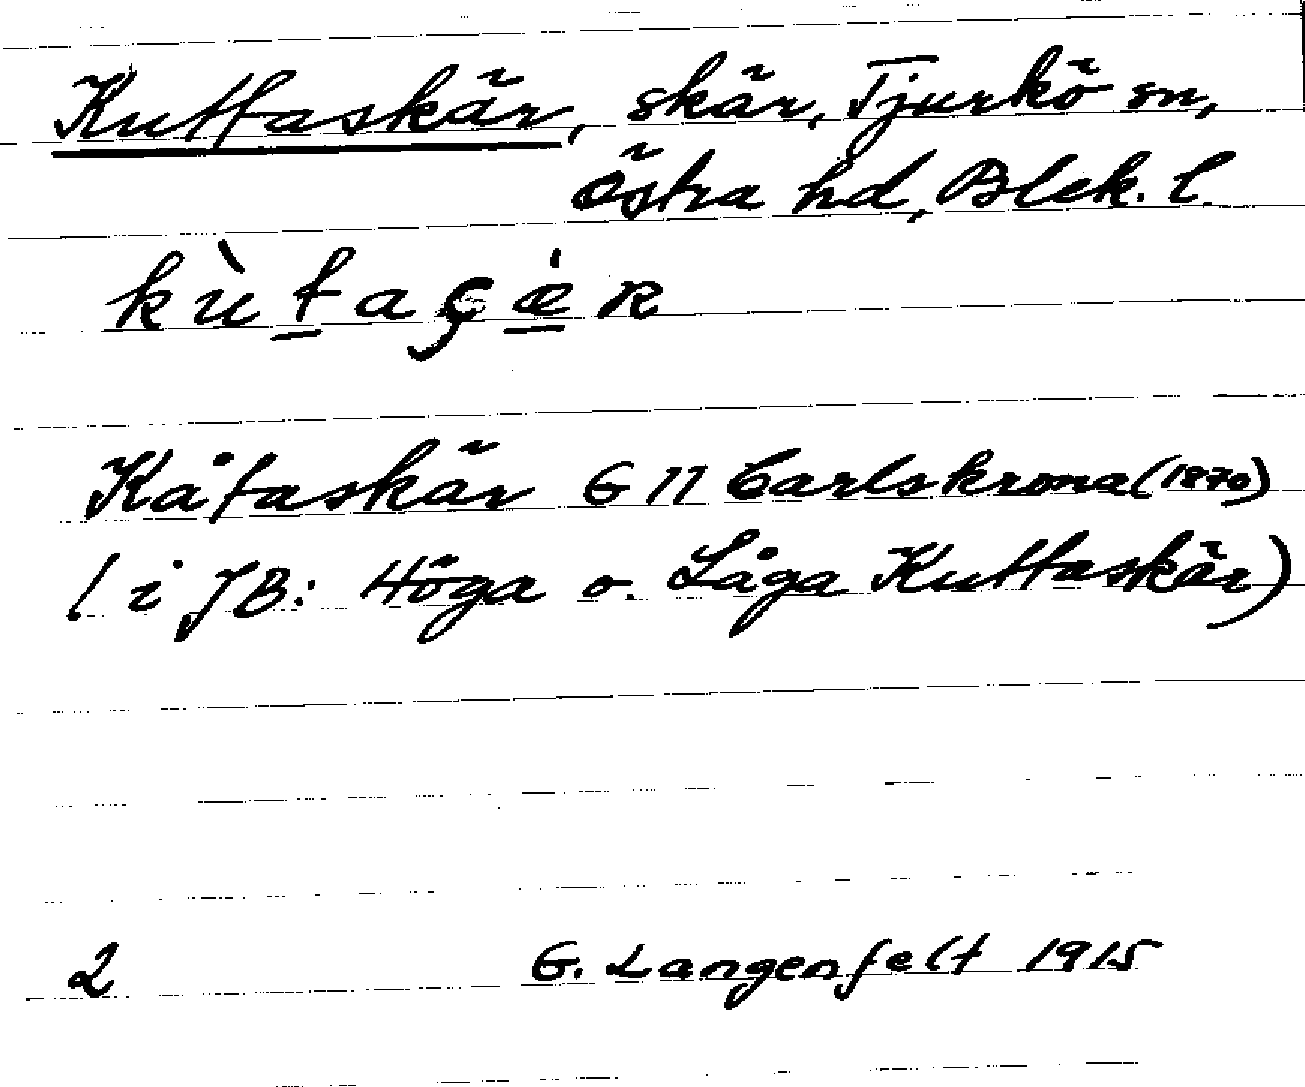 Kuttaskär, skär, Tjurkö sn,
östra hd, Blek. l.
kùtaçæ̍ʀ
Kåtaskär G 11 Carlskrona (1870)
(i JB: Höga o. Låga Kuttaskär)
2 G. Langenfelt 1915